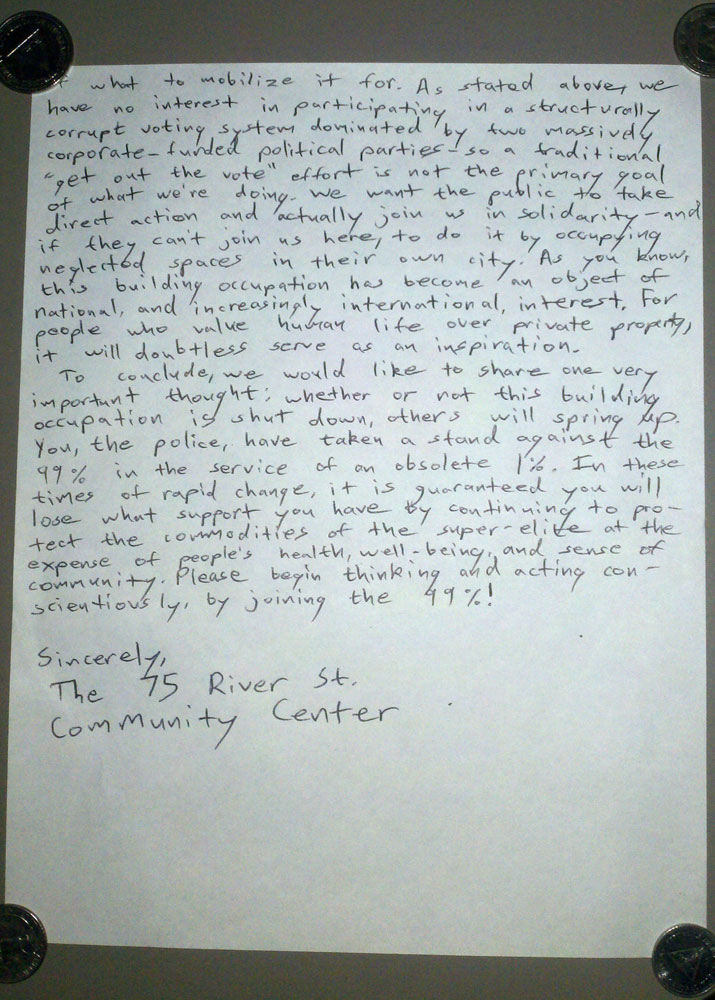 what to mobilize it for. As stated above, we
have no interest in participating in a structurally
corrupt voting system dominated by two massively
corporate-funded political parties-so a traditional
"get out the vote" effort is not the primary goal
of what we're doing. We want the public to take
direct action and actually join us in solidarity-and
if they can't join us here, to do it by occupying
neglected spaces in their own city. As you know,
this building occupation has become an object of
national, and increasingly international, interest. For
people who value human life over private property,
it will doubtless serve as an inspiration.
To conclude, we would like to share one very
important thought: whether or not this building
occupation is shut down, others will spring up.
You, the police, have taken a stand against the
99% in the service of an obsolete 1%. In these
times of rapid change, it is guaranteed you will
lose what support you have by continuing to pro-
tect the commodities of the super-elite at the
expense of people's health, well-being, and sense of
community. Please begin thinking and acting con-
scientiously, by joining the 99%!
Sincerely,
The 75 River St.
Community Center